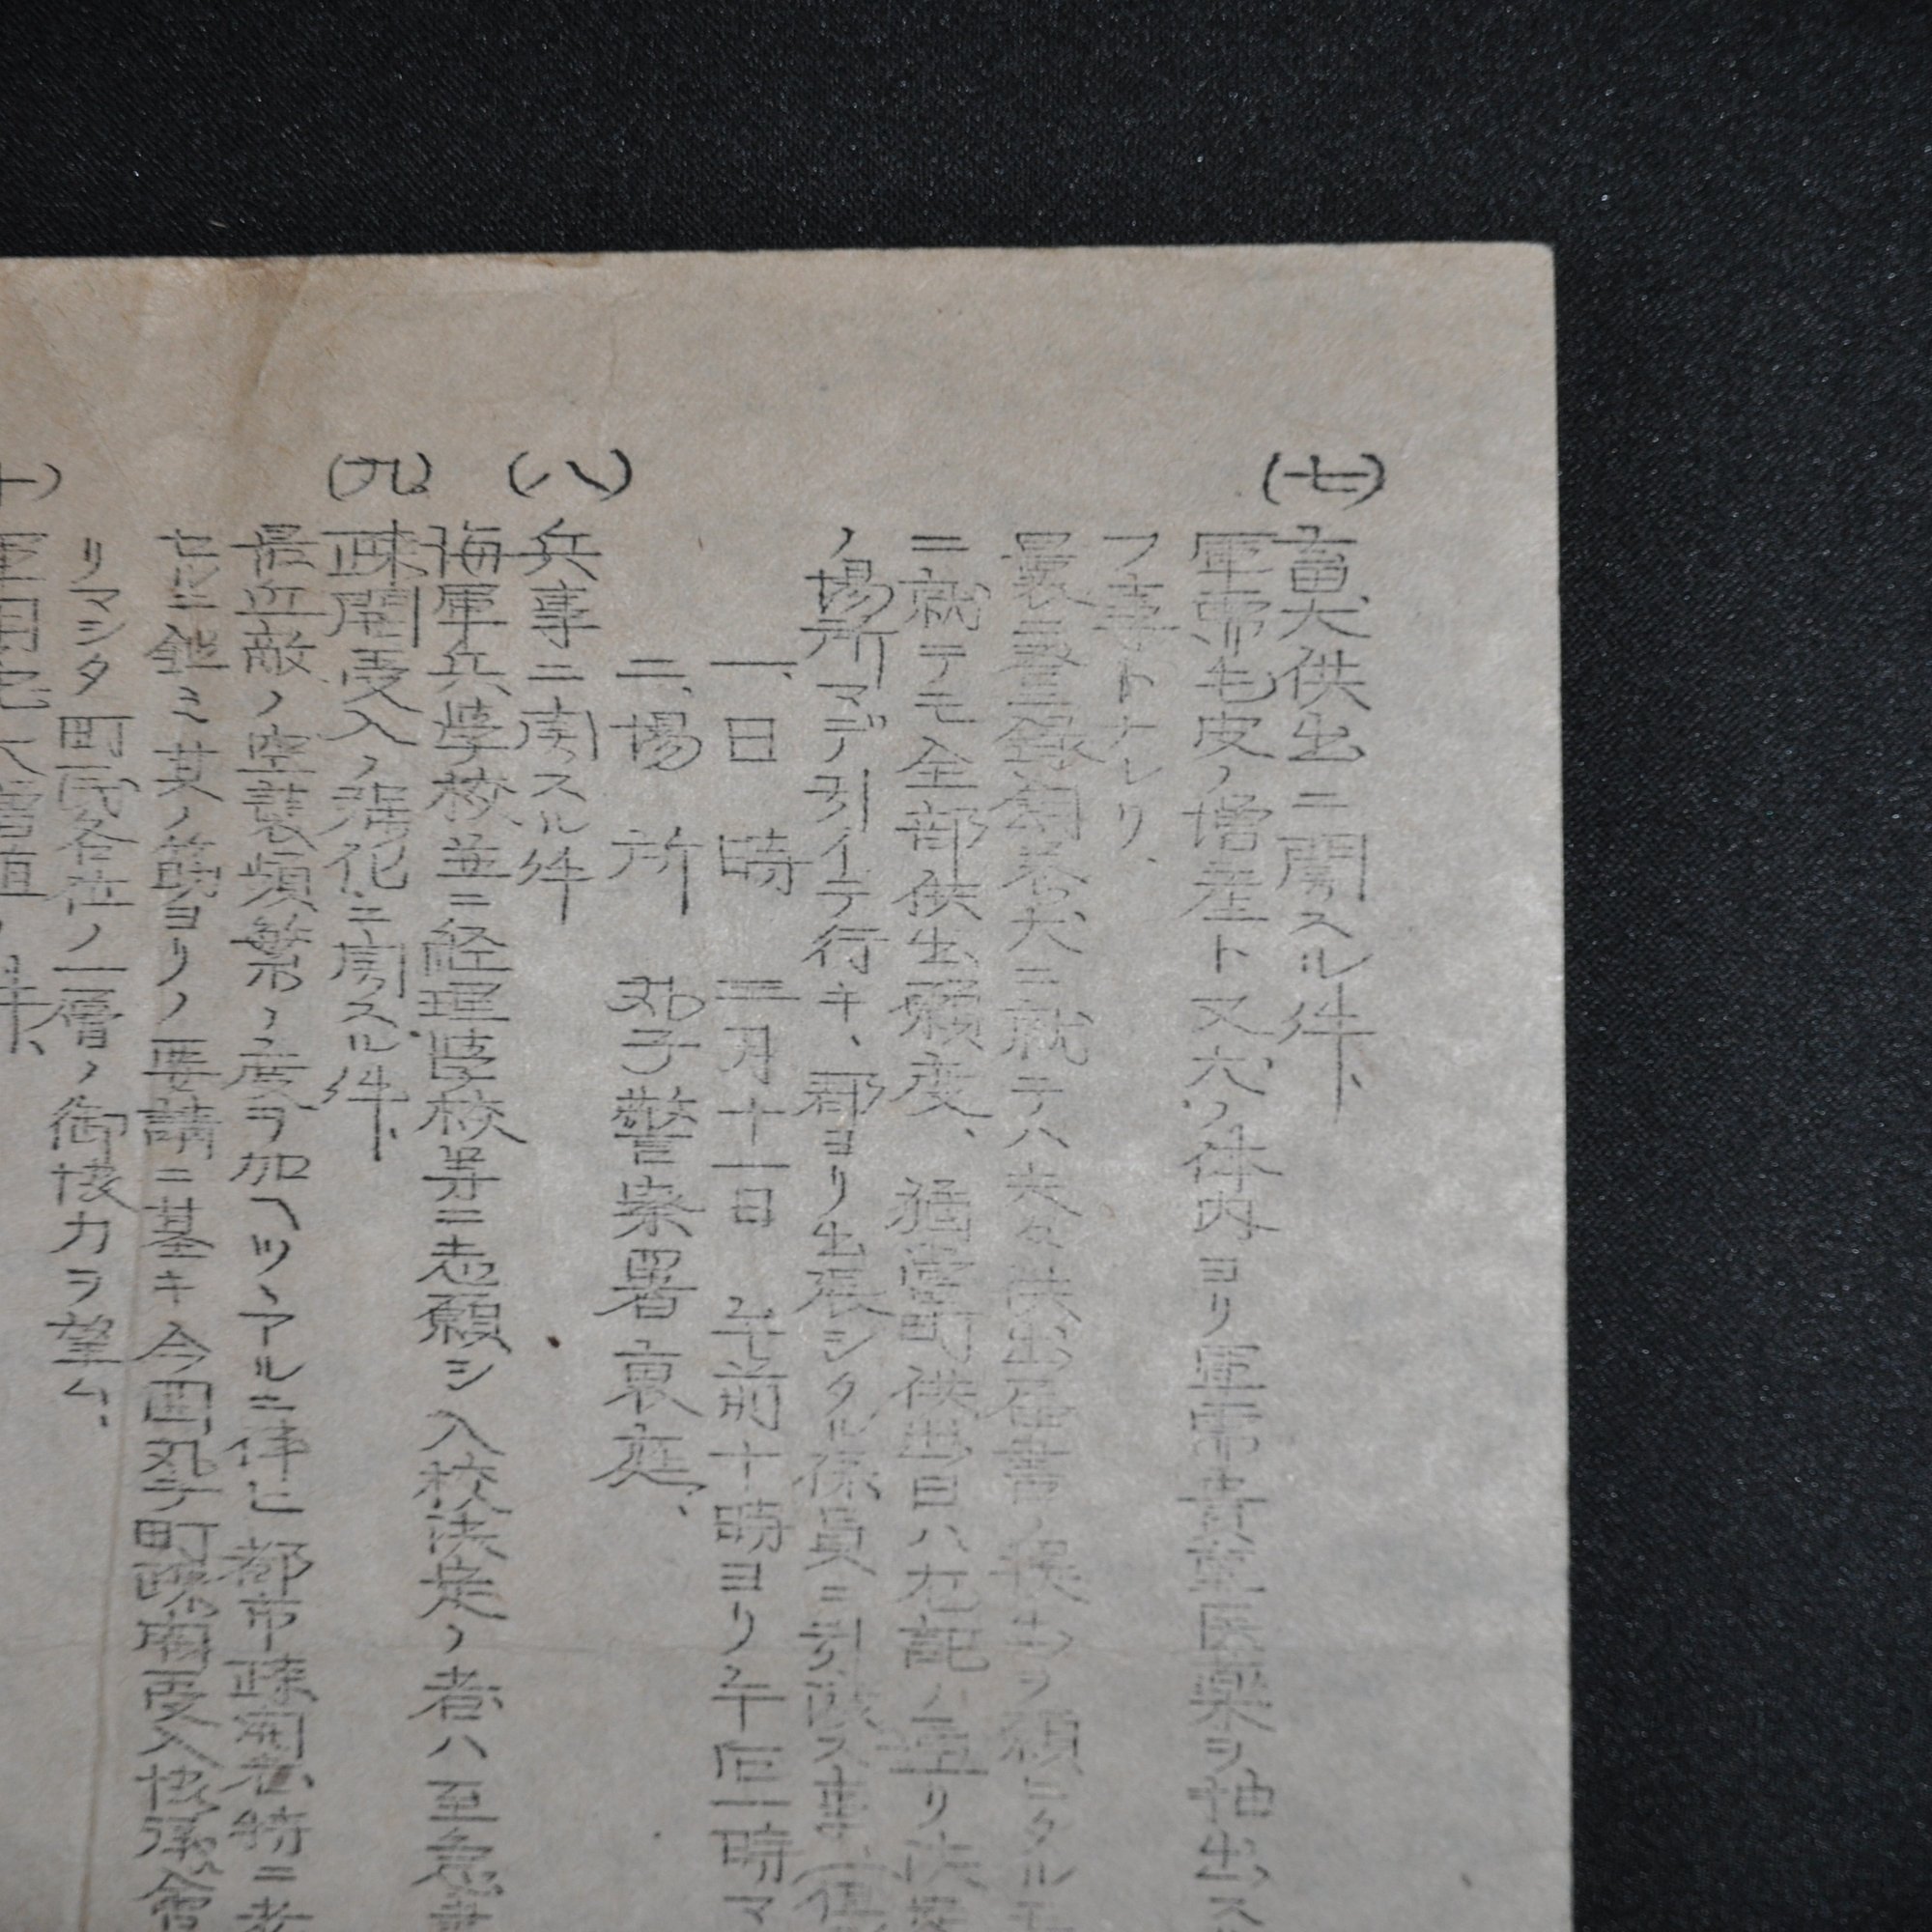 (七)
畜犬供出ニ関スル件、
軍需毛皮ノ増産ト又犬ノ体内ヨリ軍需貴重医薬ヲ抽出ス
フ事トナレリ、
曩ニ登録畜犬ニ就テハ夫々供出届書ノ提出ヲ願ヒタルモ
ニ就テモ全部供出願度、猶當町供出日ハ左記ノ通リ
ノ場所マデ引イテ行キ、郡ヨリ出張シタル係員ニ引渡ス事
一、日時 三月十一日 午前十時ヨリ午后一時マ
二、場所 丸子警察署裏庭、
(八)
兵事ニ関スル件
海軍兵学校並ニ経理学校等ニ志願シ入校決定ノ者ハ至急
(九)
疎開受入ノ強化ニ関スル件、
最近敵ノ空襲頻繁ノ度ヲ加ヘツヽアルニ伴ヒ都市疎開者特ニ
セルニ鑑ミ其ノ筋ヨリノ要請ニ基キ今回丸子町疎開受入協議會
リマシタ町民各位ノ一層ノ御協力ヲ望ム、